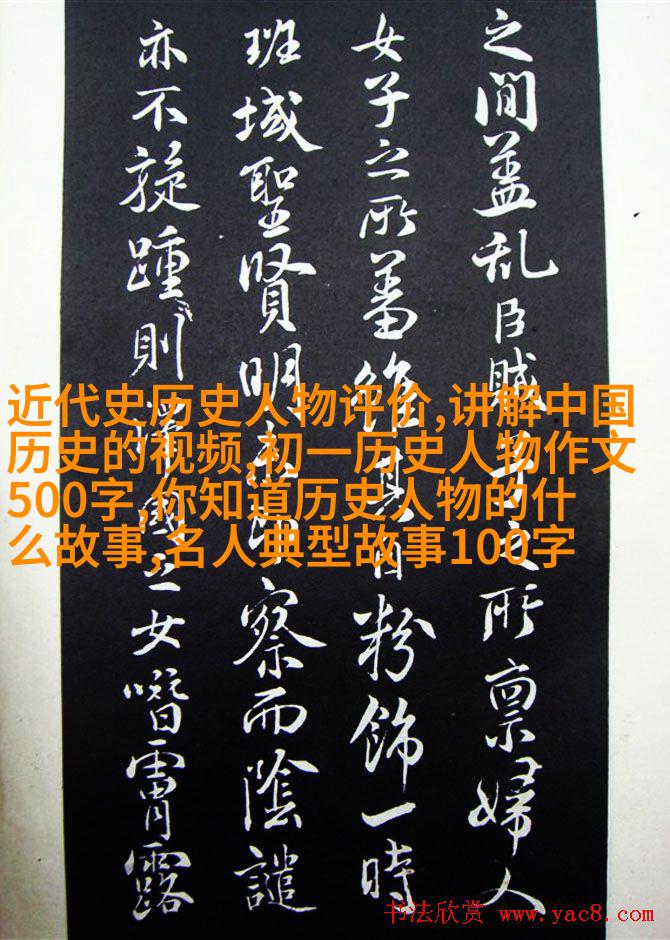 之間蓋乱臣賊之所禀婦人
女子之所蓄粉飾一時
班域聖賢明察而陰譴
亦不旋踵則女霄露
近代史历史人物评价,讲解中国
历史的视频,初一历史人物作文
500字,你知道历史人物的什
么故事,名人典型故事100字
书法欣赏 www.yac8.com